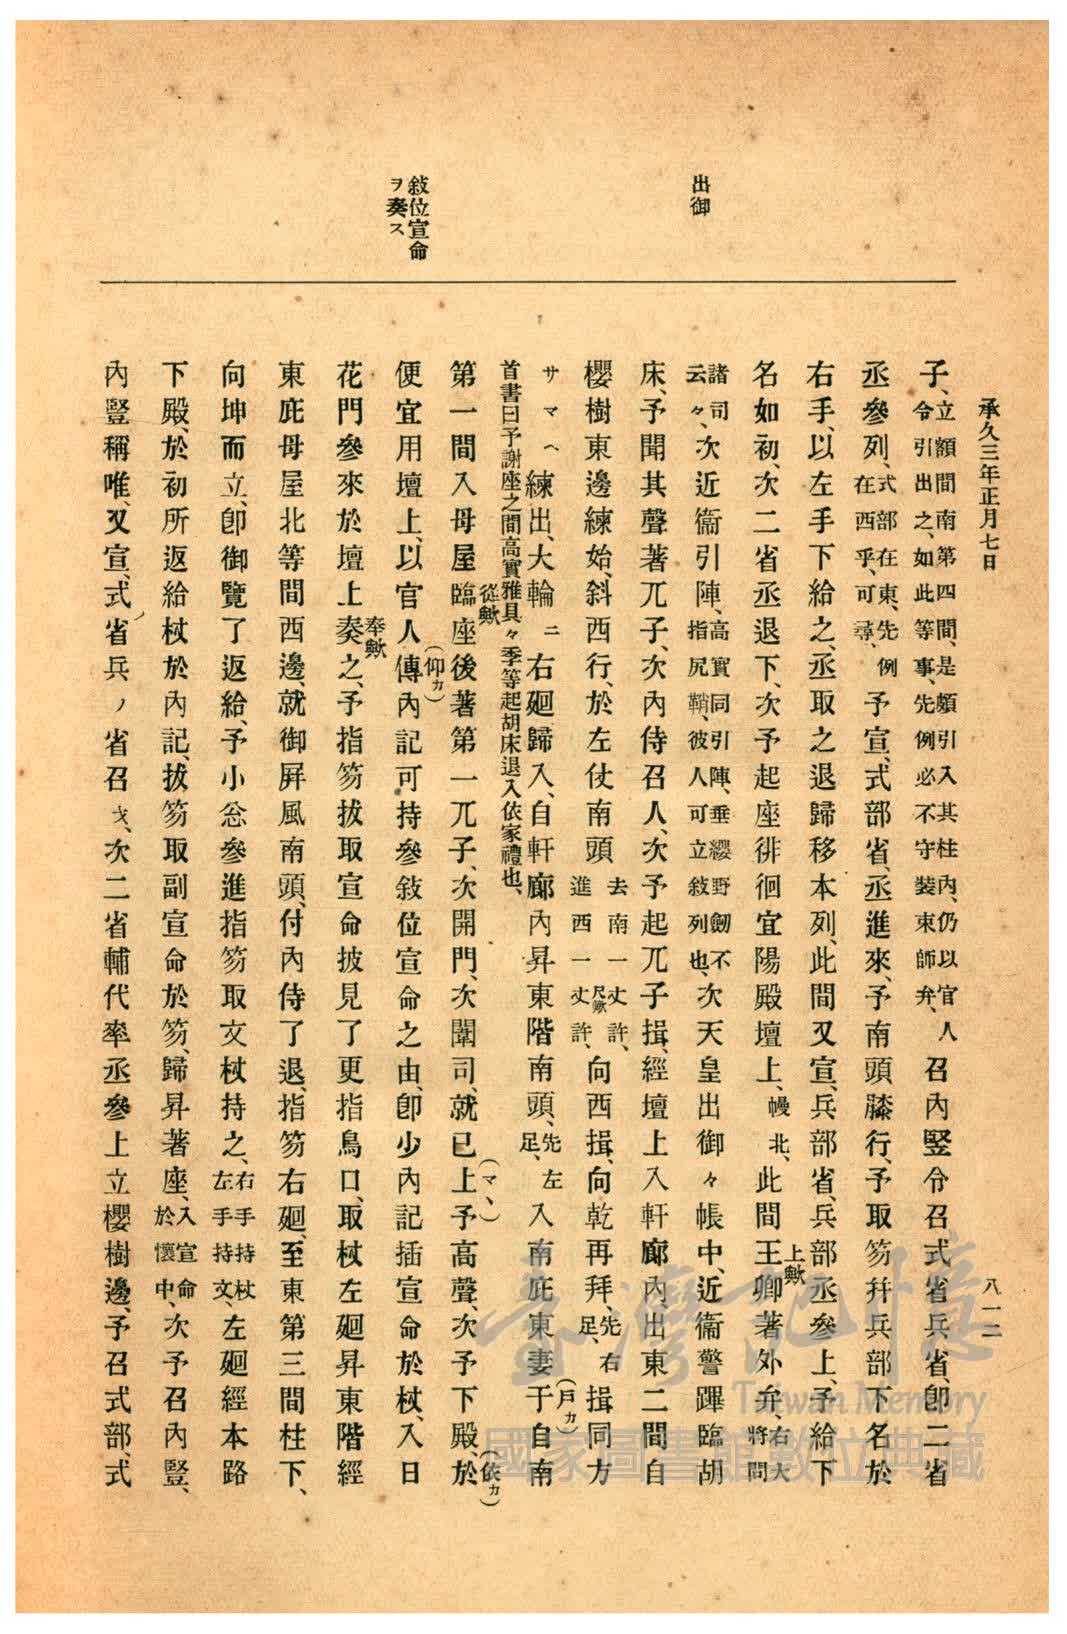 承久三年正月七日
八一二
出御
敍位宣命
ヲ奏ス
子、立額間南第四間、是頗引入其柱內、仍以官人令引出之、如此等事、先例必不守裝束師弁、召內竪令召式省兵省、卽二省
丞參列、式部在東、先例在西乎、可尋、予宣、式部省、丞進來、予南頭膝行、予取笏幷兵部下名於
右手、以左手下給之、丞取之退歸移本列、此間又宣、兵部省、兵部丞參上、予給下
名如初、次二省丞退下、次予起座徘徊宜陽殿壇上、幔北、此間王上歟卿著外弁、右大將問
諸司云々、次近衞引陣、高實同引陣、垂纓野劒不指尻鞘、彼人可立敍列也、次天皇出御々帳中、近衞警蹕臨胡
床、予聞其聲著兀子、次內侍召人、次予起兀子揖、經壇上入軒廊內、出東二間自
櫻樹東邊練始、斜西行、於左仗南頭去南一丈許、進西一丈尺歟許、向西揖、向乾再拜、先右足、揖同方
サマヘ練出、大輪ニ右廻歸入、自軒廊內昇東階南頭、先左足、入南庇東妻(戶カ)于自南
首書曰予謝座之間高實雅具々季等起胡床退入依家禮也、
第一間入母屋臨從歟座後著第一兀子、次開門、次闈司、就已上(マヽ)予高聲、次予下殿、於(依カ)
便宜用壇上、以官人傳(仰カ)內記可持參敍位宣命之由、卽少內記插宣命於杖、入日
花門參來於壇上奏奉歟之、予指笏拔取宣命披見了更指鳥口、取杖左廻昇東階經
東庇母屋北等間西邊、就御屛風南頭、付內侍了退、指笏右廻、至東第三間柱下、
向坤而立、卽御覽了返給、予小忩參進指笏取文杖持之、右手持杖左手持文、左廻經本路
下殿、於初所返給杖於內記、拔笏取副宣命於笏、歸昇著座、入宣命於懷中、次予召內竪、
內竪稱唯、又宣、式ノ省兵ノ省召セ、次二省輔代率丞參上立櫻樹邊、予召式部、式
臺灣記憶
Taiwan Memory
國家圖書館數位典藏